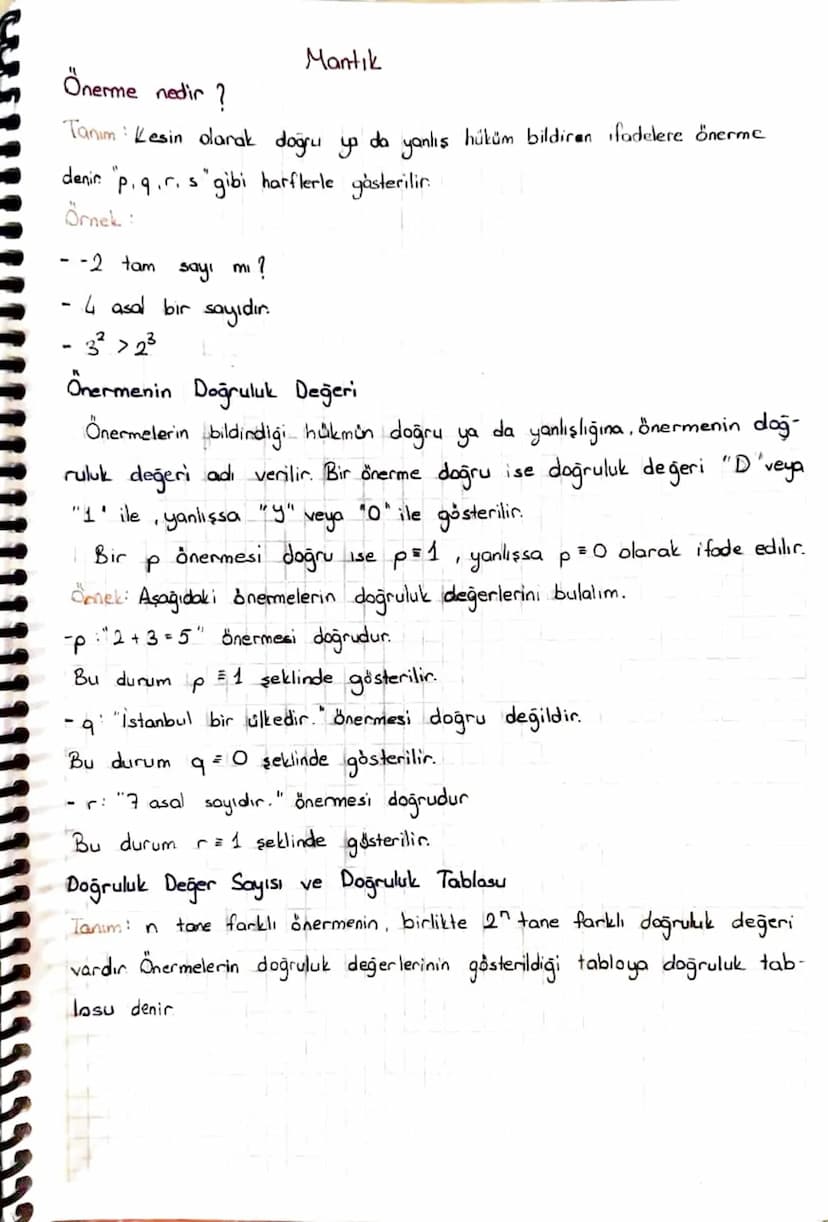 Mantık
Önerme nedir ?
Tanım : Kesin olarak doğru ya da yanlış hüküm bildiren ifadelere önerme
denir. "p, q, r, s" gibi harflerle gösterilir.
Örnek :
- -2 tam sayı mı ?
- 4 asal bir sayıdır.
- 3² > 2³
Önermenin Doğruluk Değeri
Önermelerin bildirdiği hükmün doğru ya da yanlışlığına, önermenin doğ-
ruluk değeri adı verilir. Bir önerme doğru ise doğruluk değeri "D" veya
"1" ile, yanlışsa "Y" veya "0" ile gösterilir.
Bir p önermesi doğru ise p ≡ 1, yanlışsa p ≡ 0 olarak ifade edilir.
Örnek: Aşağıdaki önermelerin doğruluk değerlerini bulalım.
-p : "2 + 3 = 5" önermesi doğrudur.
Bu durum p ≡ 1 şeklinde gösterilir.
- q : "İstanbul bir ülkedir." önermesi doğru değildir.
Bu durum q ≡ 0 şeklinde gösterilir.
- r : "7 asal sayıdır." önermesi doğrudur
Bu durum r ≡ 1 şeklinde gösterilir.
Doğruluk Değer Sayısı ve Doğruluk Tablosu
Tanım : n tane farklı önermenin, birlikte 2ⁿ tane farklı doğruluk değeri
vardır. Önermelerin doğruluk değerlerinin gösterildiği tabloya doğruluk tab-
losu denir.